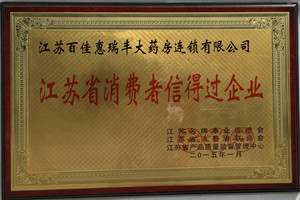 江苏百佳惠瑞丰大药房连锁有限公司
江苏省消费者信得过企业
江苏名牌事业促进会
江苏省产品质量监督管理中心
二〇一五年一月